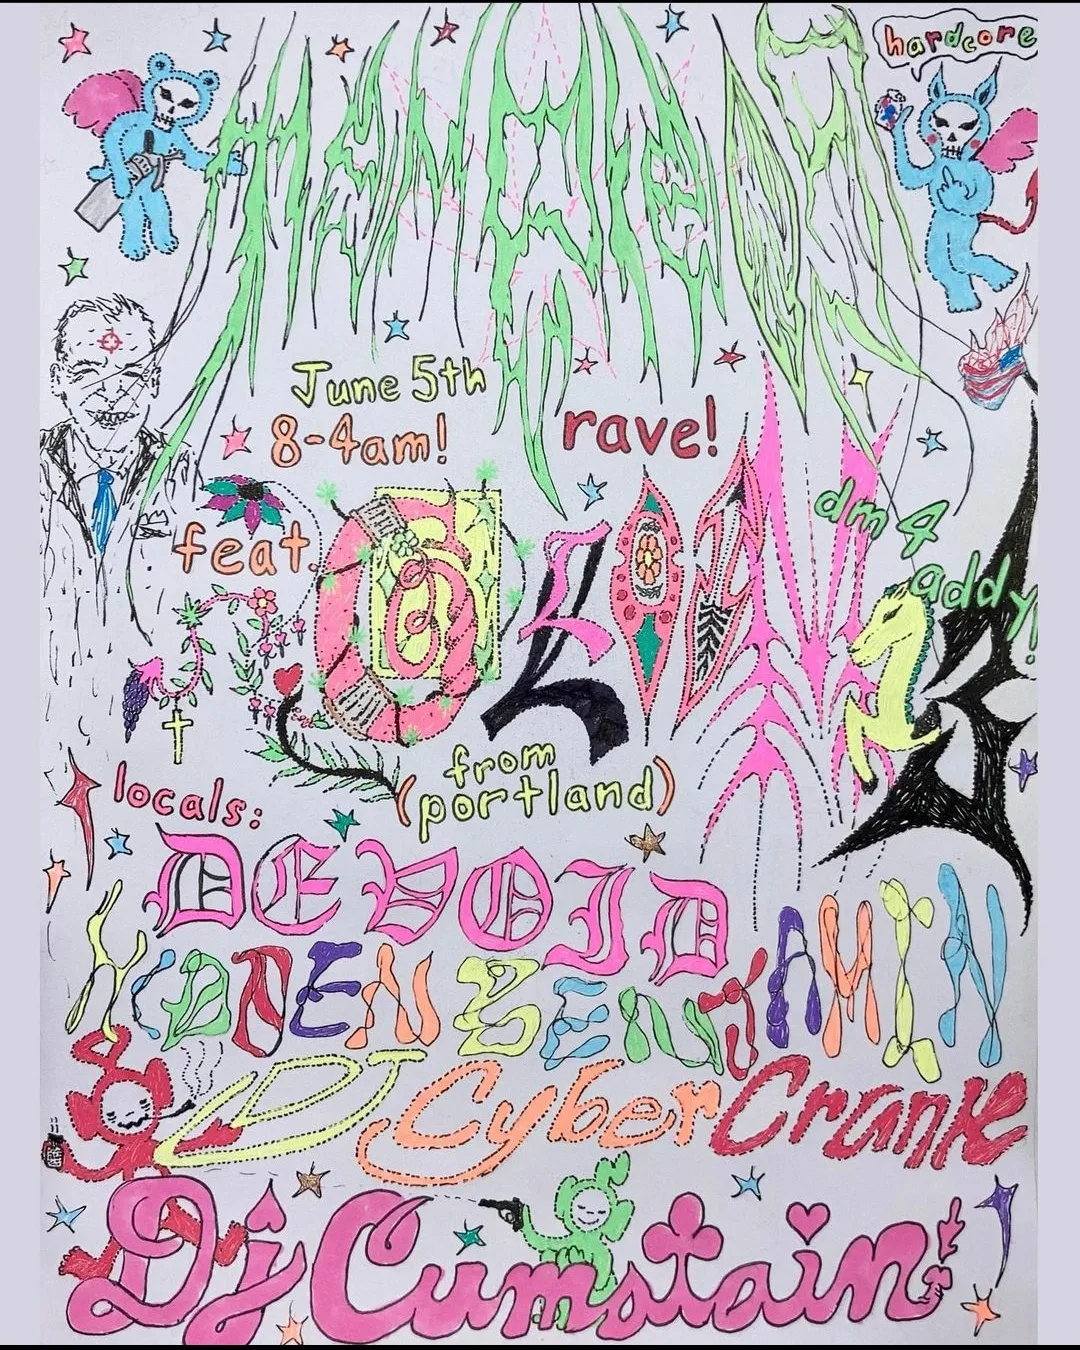 hardcore
June 5th
8-4am!
rave!
dm 4
addy!
feat.
from
(portland)
locals:
DEVOID
BENJAMIN
DJ Cyber Crank
Dj Cumstain